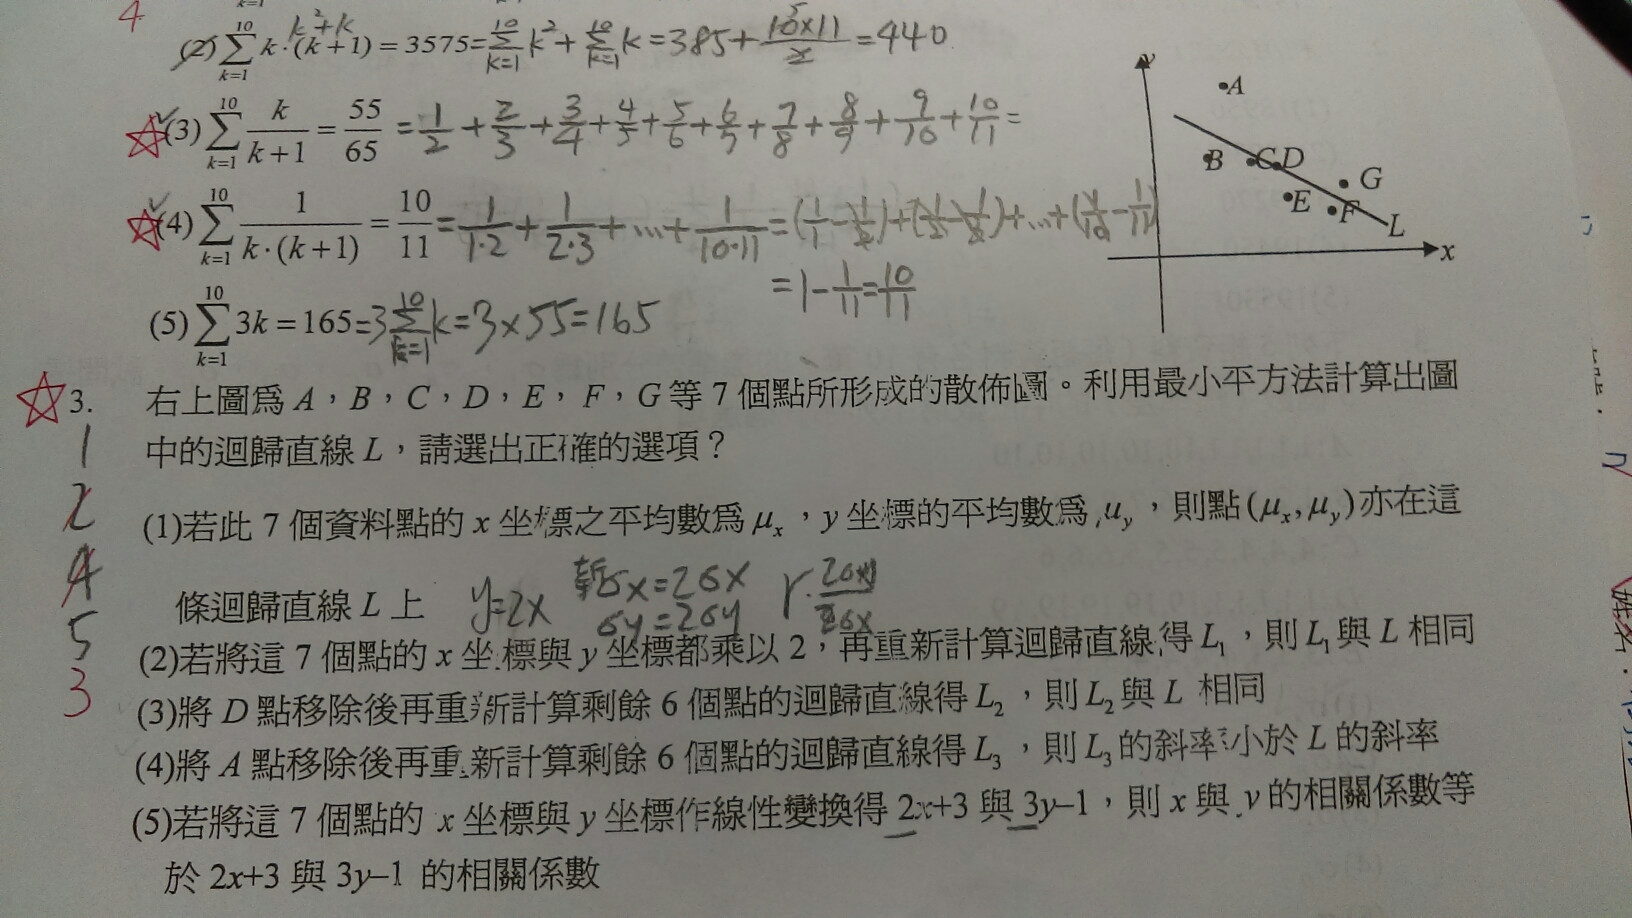 4
(2) \sum_{k=1}^{10} k·(k+1) = 3575 = \sum_{k=1}^{10} k² + \sum_{k=1}^{10} k = 385 + \frac{10×11}{2} = 440
k²+k
5
☆(3) \sum_{k=1}^{10} \frac{k}{k+1} = \frac{55}{65} = \frac{1}{2} + \frac{2}{3} + \frac{3}{4} + \frac{4}{5} + \frac{5}{6} + \frac{6}{7} + \frac{7}{8} + \frac{8}{9} + \frac{9}{10} + \frac{10}{11} =
☆(4) \sum_{k=1}^{10} \frac{1}{k·(k+1)} = \frac{10}{11} = \frac{1}{1·2} + \frac{1}{2·3} + ... + \frac{1}{10·11} = (\frac{1}{1} - \frac{1}{2}) + (\frac{1}{2} - \frac{1}{3}) + ... + (\frac{1}{10} - \frac{1}{11})
= 1 - \frac{1}{11} = \frac{10}{11}
(5) \sum_{k=1}^{10} 3k = 165 = 3 \sum_{k=1}^{10} k = 3×55 = 165
y
A
B
C
D
E
F
G
L
x
☆3. 右上圖為 A，B，C，D，E，F，G 等 7 個點所形成的散佈圖。利用最小平方法計算出圖
中的迴歸直線 L，請選出正確的選項？
1
2
4
5
3
(1)若此 7 個資料點的 x 坐標之平均數為 μx，y 坐標的平均數為 uy，則點 (μx, μy) 亦在這
條迴歸直線 L 上
y=2x
新σx=2σx
σy=2σy
r·\frac{2σy}{2σx}
(2)若將這 7 個點的 x 坐標與 y 坐標都乘以 2，再重新計算迴歸直線得 L1，則 L1 與 L 相同
(3)將 D 點移除後再重新計算剩餘 6 個點的迴歸直線得 L2，則 L2 與 L 相同
(4)將 A 點移除後再重新計算剩餘 6 個點的迴歸直線得 L3，則 L3 的斜率小於 L 的斜率
(5)若將這 7 個點的 x 坐標與 y 坐標作線性變換得 2x+3 與 3y–1，則 x 與 y 的相關係數等
於 2x+3 與 3y–1 的相關係數